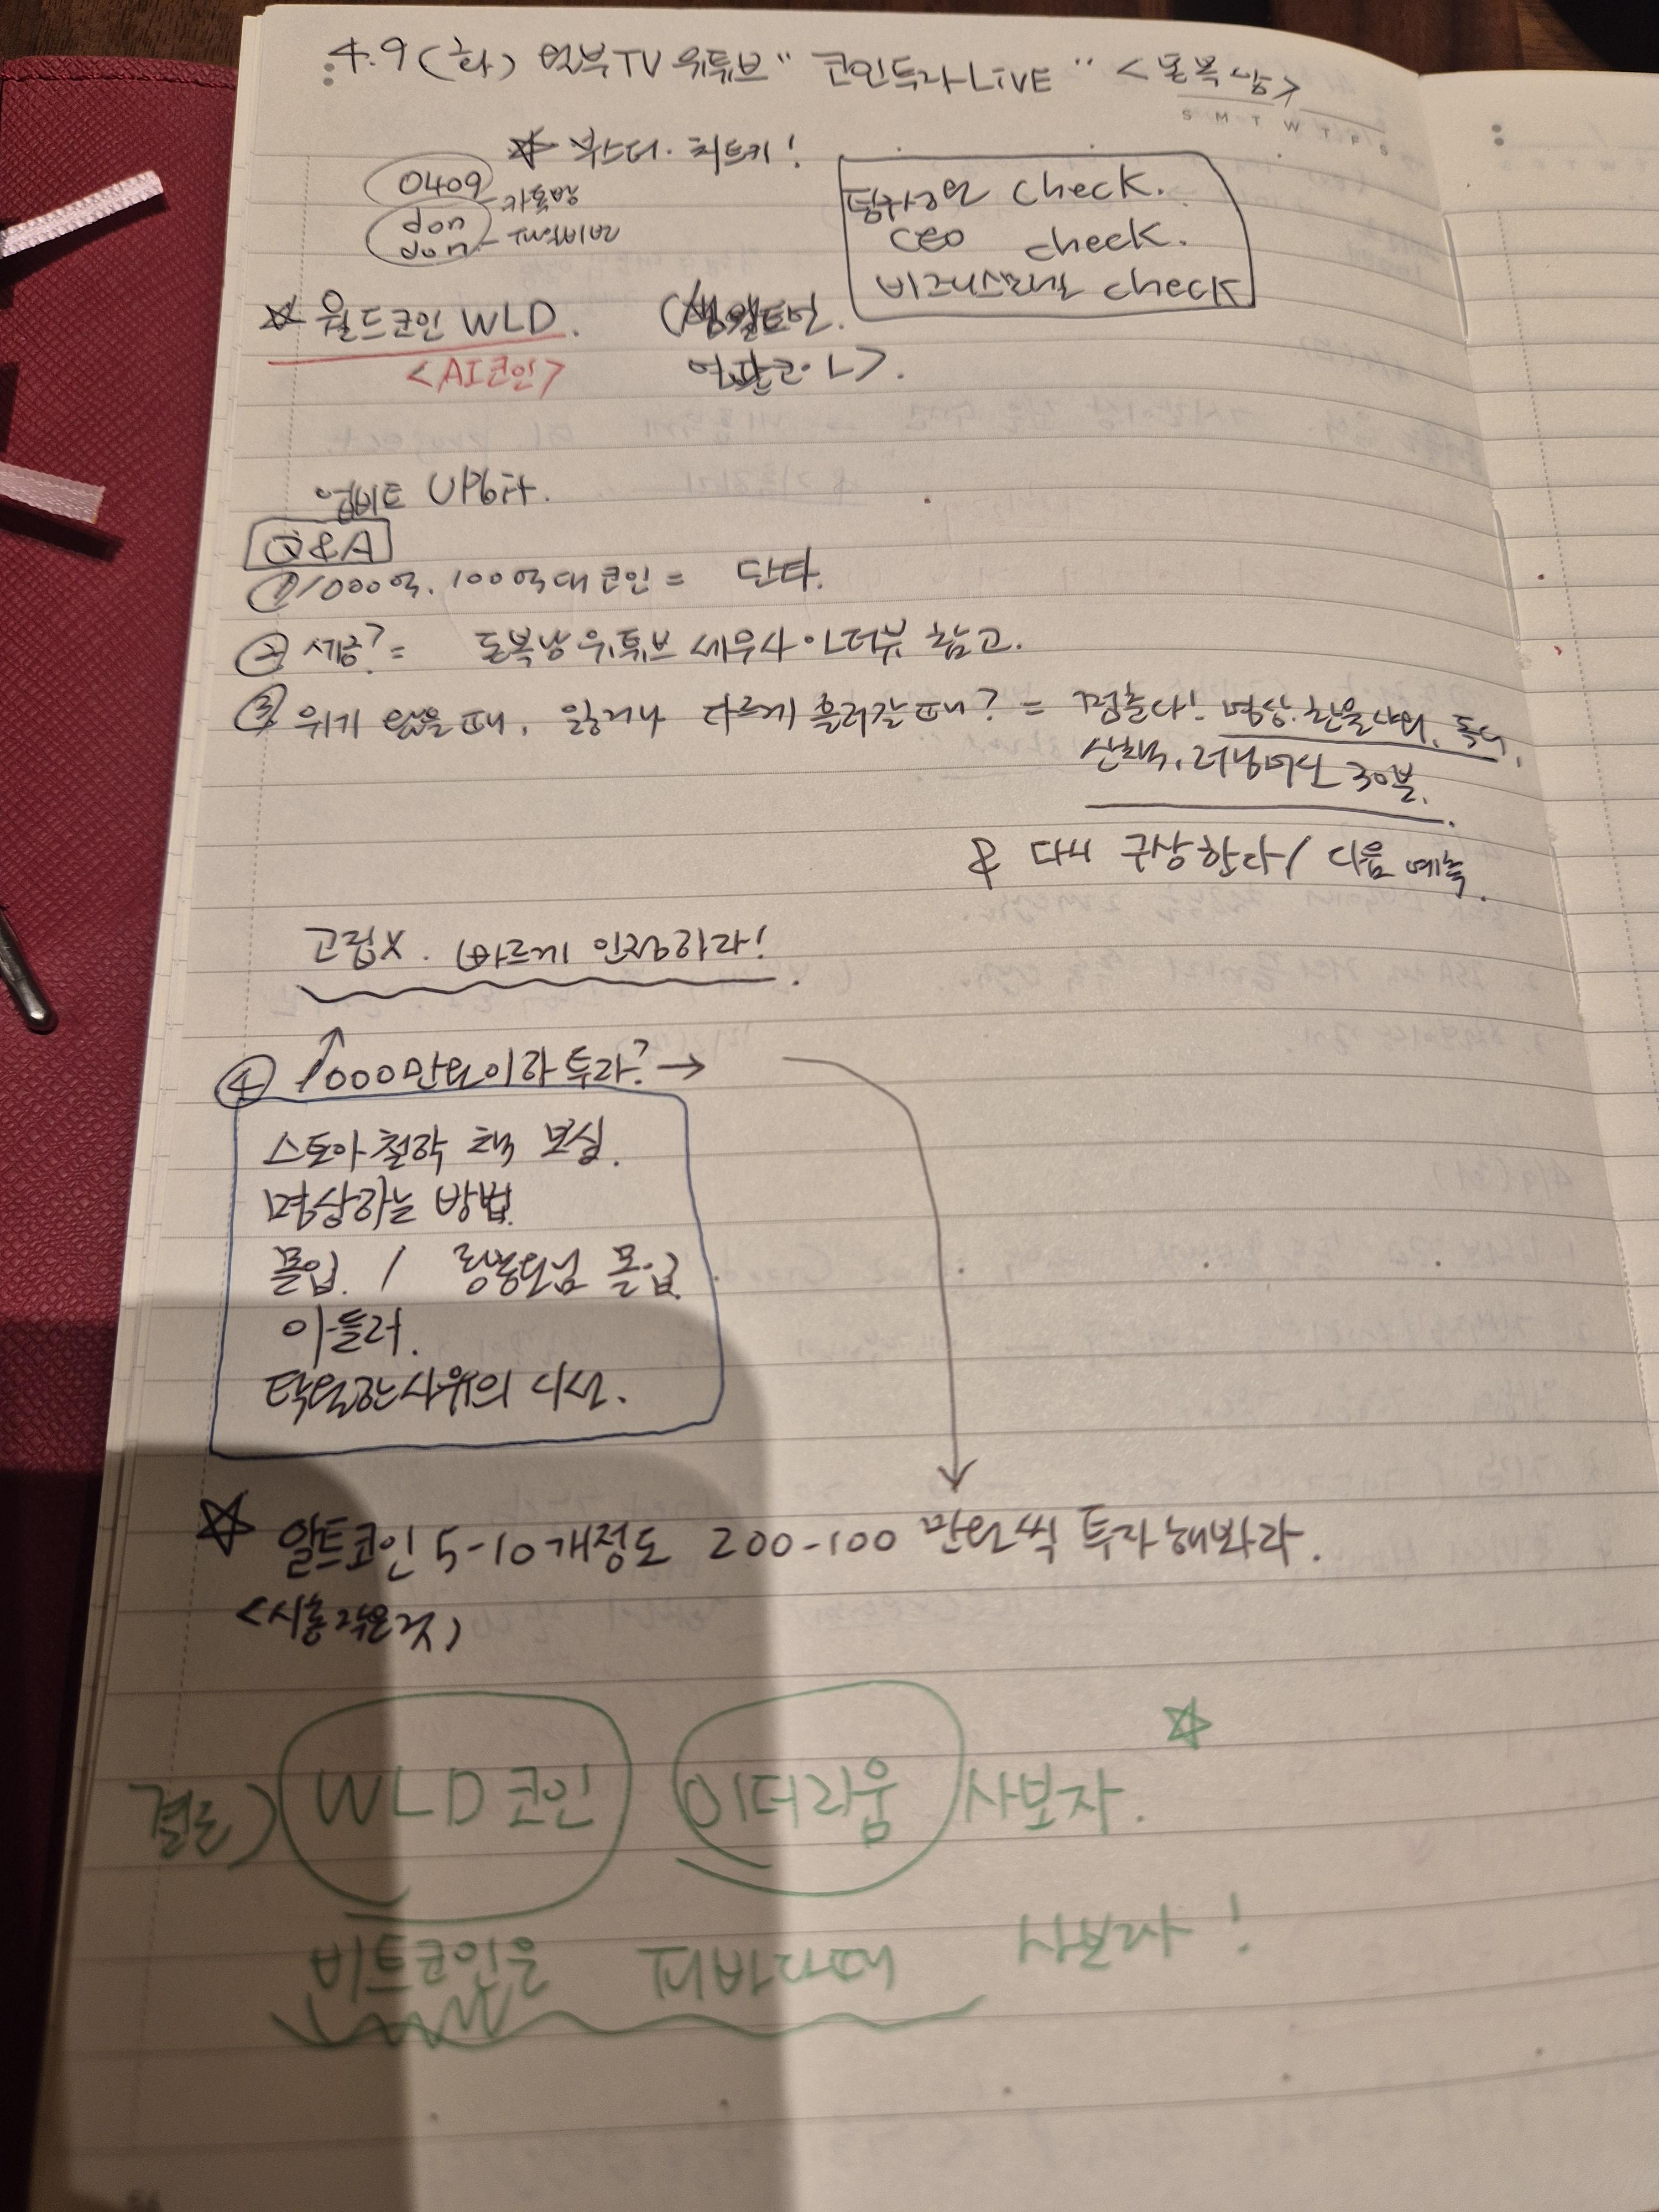 4.9 (화) 부TV 유튜브 " 코인투자 LIVE " <돈복남>
S M T W T F S
☆ 부스터. 치트키!
0409 카톡방
don
don
check.
CEO check.
비즈니스모델 check
☆ 월드코인 WLD.
<AI코인>
업비트 UPbit.
Q&A
① 1000억. 100억대 코인 = 단타.
② 세금? = 돈복남 유튜브 세무사 인터뷰 참고.
③ 위기 왔을 때, 잃거나 다르게 흘러갈 때? = 멈춘다! 명상. 찬물샤워. 독서,
산책, 러닝머신 30분.
& 다시 구상한다/ 다음 예측.
고립X. 빠르게 인정하라!
④ 1000만원이하 투자? →
스토아 철학 책 보심.
명상하는 방법.
몰입. / 황농문님 몰입.
아들러.
탁월한 사유의 시선.
☆ 알트코인 5-10개정도 200-100 만원씩 투자해봐라.
<시총 작은 것>
결론) WLD 코인 이더리움 사보자. ☆
비트코인은 피바다때 사보자!